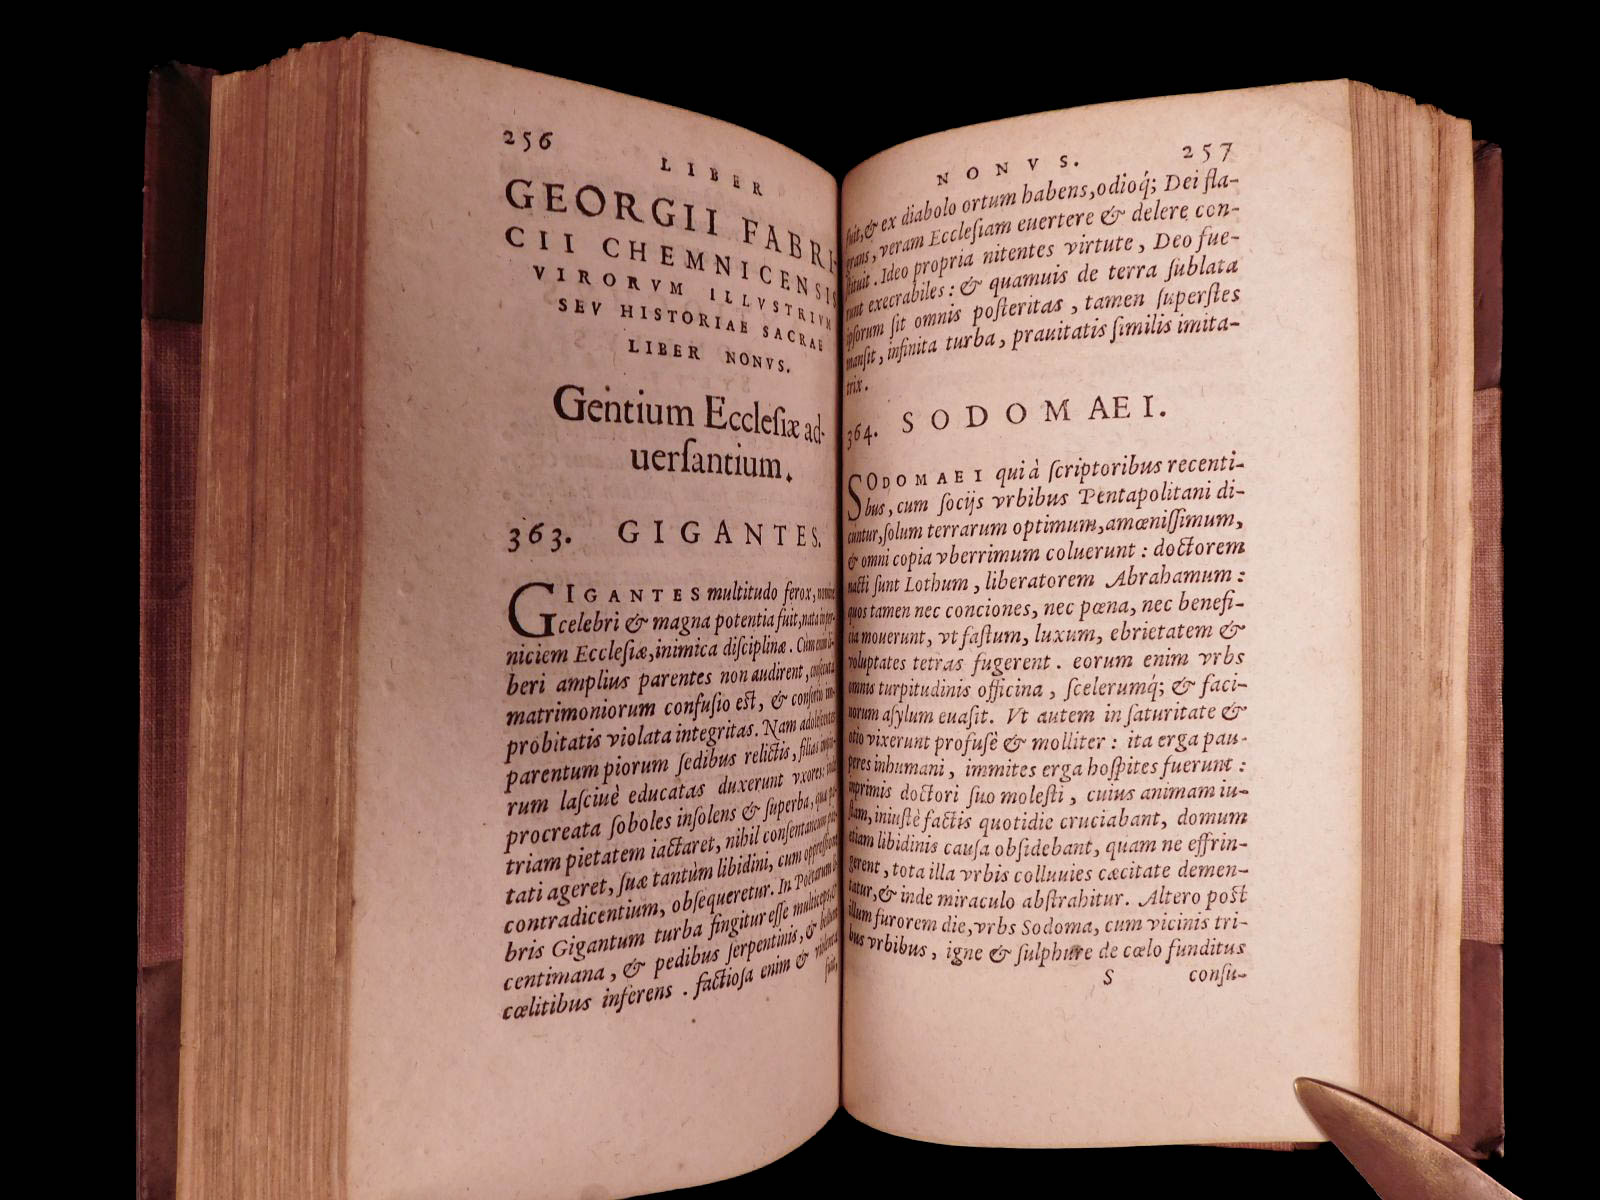 256
LIBER
GEORGII FABRI-
CII CHEMNICENSIS
VIRORVM ILLVSTRIVM
SEV HISTORIAE SACRAE
LIBER NONVS.
Gentium Ecclesiæ ad-
uersantium.
363. GIGANTES.
GIGANTES multitudo ferox,
celebri & magna potentia fuit, nata in per-
niciem Ecclesiæ, inimica disciplinæ. Cum enim li-
beri amplius parentes non audirent,
matrimoniorum confusio est, & consortio im-
probitatis violata integritas. Nam adolescentes
parentum piorum sedibus relictis, filias
rum lasciuè educatas duxerunt vxores:
procreata soboles insolens & superba, quæ pa-
triam pietatem iactaret, nihil consentaneum
tati ageret, suæ tantùm libidini, cum oppressione
contradicentium, obsequeretur. In Poëtarum li-
bris Gigantum turba fingitur esse multiceps,
centimana, & pedibus serpentinis, & bellum
cœlitibus inferens. factiosa enim & violenta
fuit,
NONVS. 257
fuit, & ex diabolo ortum habens, odioq́; Dei fla-
grans, veram Ecclesiam euertere & delere con-
stituit. Ideo propria nitentes virtute, Deo fue-
runt execrabiles: & quamuis de terra sublata
ipsorum sit omnis posteritas, tamen superstes
mansit, infinita turba, prauitatis similis imita-
trix.
364. SODOMAEI.
SODOMAEI qui à scriptoribus recenti-
bus, cum socijs vrbibus Pentapolitani di-
cuntur, solum terrarum optimum, amœnissimum,
& omni copia vberrimum coluerunt: doctorem
nacti sunt Lothum, liberatorem Abrahamum:
quos tamen nec conciones, nec pœna, nec benefi-
cia mouerunt, vt fastum, luxum, ebrietatem &
voluptates tetras fugerent. eorum enim vrbs
omnis turpitudinis officina, scelerumq́; & faci-
norum asylum euasit. Vt autem in saturitate &
otio vixerunt profusè & molliter: ita erga pau-
peres inhumani, immites erga hospites fuerunt:
inprimis doctori suo molesti, cuius animam iu-
stam, iniustè factis quotidie cruciabant, domum
etiam libidinis causa obsidebant, quam ne effrin-
gerent, tota illa vrbis colluuies cæcitate demen-
tatur, & inde miraculo abstrahitur. Altero post
illum furorem die, vrbs Sodoma, cum vicinis tri-
bus vrbibus, igne & sulphure de cœlo funditus
S consu-